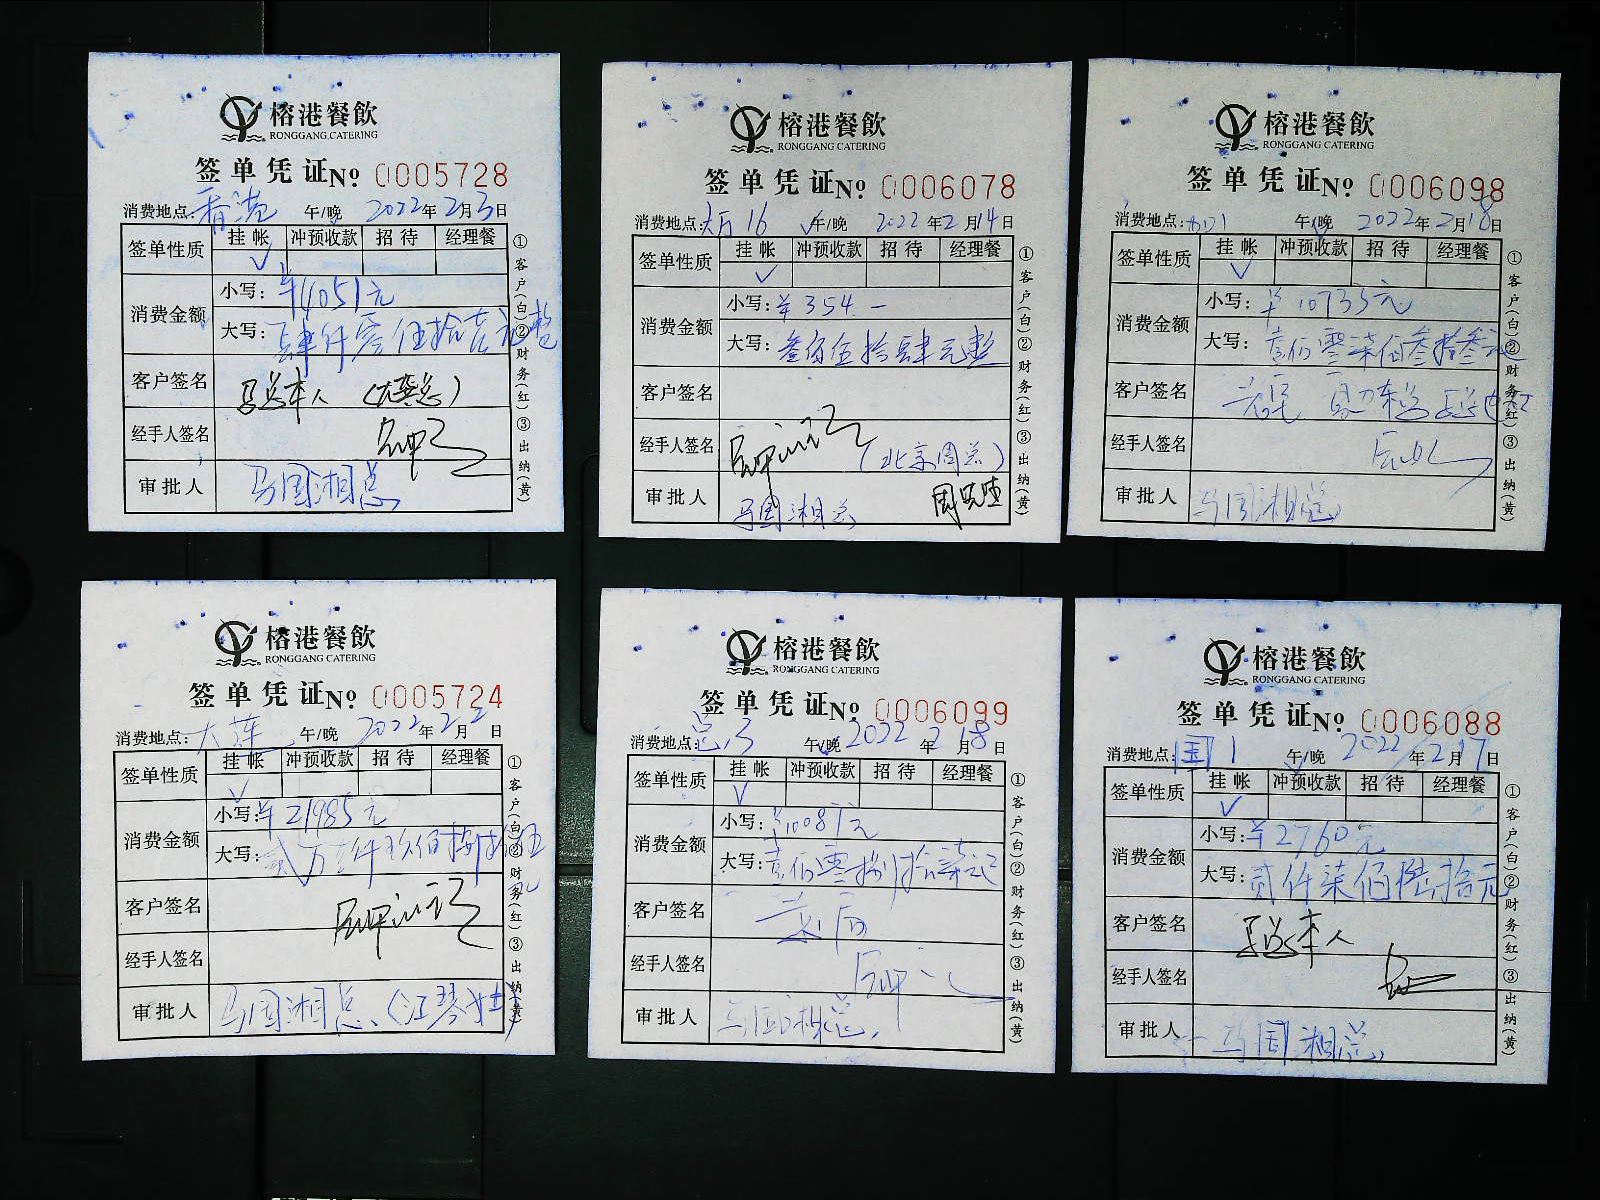 榕港餐飲
RONGGANG CATERING
签单凭证№ 0005728
消费地点:香港 午/晚 2022年2月3日
签单性质 挂帐 冲预收款 招待 经理餐
√
消费金额 小写:¥4051元
大写:肆仟零伍拾壹元整
客户签名 马总本人
经手人签名
审批人 马国湘总
①客户(白)②财务(红)③出纳(黄)
榕港餐飲
RONGGANG CATERING
签单凭证№ 0006078
消费地点:大厅16 午/晚 2022年2月14日
签单性质 挂帐 冲预收款 招待 经理餐
√
消费金额 小写:¥354.—
大写:叁佰伍拾肆元整
客户签名
经手人签名 (北京周总)
审批人 马国湘总
①客户(白)②财务(红)③出纳(黄)
榕港餐飲
RONGGANG CATERING
签单凭证№ 0006098
消费地点: 午/晚 2022年2月18日
签单性质 挂帐 冲预收款 招待 经理餐
√
消费金额 小写:¥10733元
大写:零柒佰叁拾叁元
客户签名
经手人签名
审批人 马国湘总
①客户(白)②财务(红)③出纳(黄)
榕港餐飲
RONGGANG CATERING
签单凭证№ 0005724
消费地点:大莲 午/晚 2022年2月2日
签单性质 挂帐 冲预收款 招待 经理餐
√
消费金额 小写:¥21985元
大写:贰万壹仟玖佰捌拾伍元
客户签名
经手人签名
审批人 马国湘总、(江琴
①客户(白)②财务(红)③出纳(黄)
榕港餐飲
RONGGANG CATERING
签单凭证№ 0006099
消费地点:总3 午/晚 2022年2月18日
签单性质 挂帐 冲预收款 招待 经理餐
√
消费金额 小写:¥10087元
大写:零捌拾柒元
客户签名
经手人签名
审批人 马国湘总
①客户(白)②财务(红)③出纳(黄)
榕港餐飲
RONGGANG CATERING
签单凭证№ 0006088
消费地点:国1 午/晚 2022年2月17日
签单性质 挂帐 冲预收款 招待 经理餐
√
消费金额 小写:¥2760元
大写:贰仟柒佰陆拾元
客户签名 马总本人
经手人签名
审批人 马国湘总
①客户(白)②财务(红)③出纳(黄)